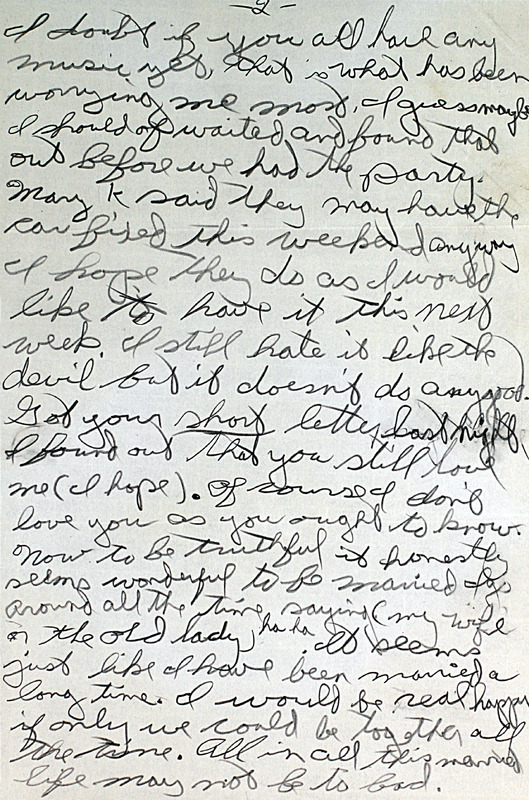 -2-
I doubt if you all have any
music yet, that is what has been
worrying me most, I guess maybe
I should of waited and found that
out before we had the party.
Mary K said they may have the
car fixed this weekend anyway
I hope they do as I would
like to have it this next
week. I still hate it like the
devil but it doesn't do any good.
Got your short letter last night,
I found out that you still love
me (I hope). Of course I don't
love you as you ought to know.
Now to be truthful it honestly
seems wonderful to be married I go
around all the time saying (my wife
or the old lady, ha ha. It seems
just like I have been married a
long time. I would be real happy
if only we could be together all
the time. All in all this married
life may not be to bad.